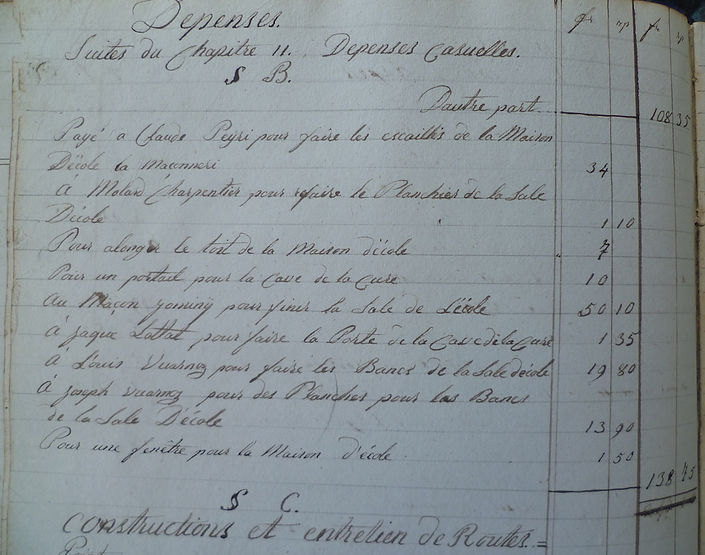 Depenses. fr rp fr rp
Suites du Chapitre 11. Depenses Casuelles.
S B.
Dautre part 108 35
Payé a Claude Peyri pour faire les escailiés de la Maison
Décole la Maconneri 34
à Molard Charpentier pour refaire le Planchier de la Sale
Décole 1 10
Pour alonger le toit de la Maison décole 7
Pour un portail pour la Cave de la Cure 10
au Maçon pour finir la Sale de L'école 50 10
à Jaque Lattat pour faire la Porte de la Cave de la Cure 1 35
à Louis Vuarnoz pour faire les Bancs de la Sale decole 19 80
à Joseph Vuarnoz pour des Planches pour les Bancs
de la Sale D'école 13 90
Pour une fenêtre pour la Maison d'école 1 50
138 75
S C.
Constructions et entretien de Routes. =